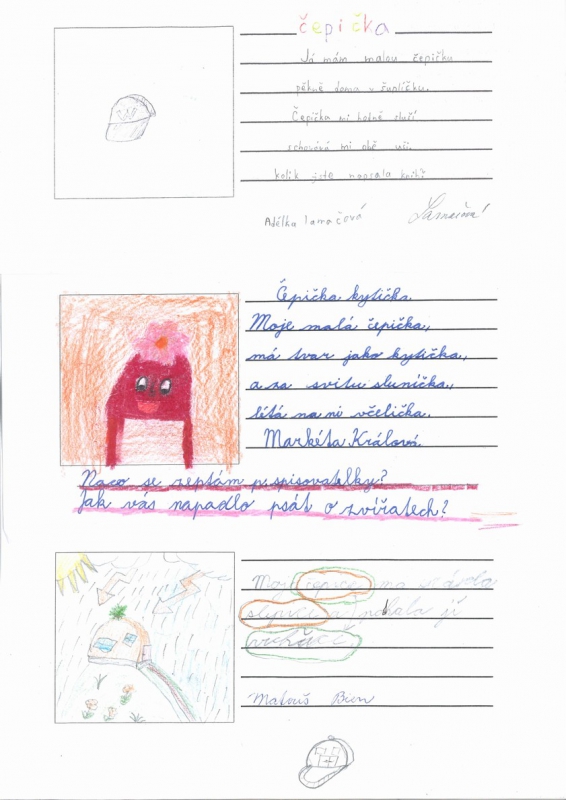 čepička
Já mám malou čepičku
pěkně doma v šuplíčku.
Čepička mi hodně sluší
schovává mi obě uši.
kolik jste napsala knih?
Adélka lamačová
Lamačová
Čepička kytička.
Moje malá čepička,
má tvar jako kytička,
a za svitu sluníčka,
létá na ni včelička.
Markéta Králová.
Naco se zeptám p. spisovatelky?
Jak vás napadlo psát o zvířatech?
Moje čepice
slepici
jí
Matouš